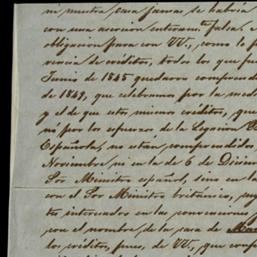 ni nuestra casa jamas se habria
con una asercion enteramte falsa,
obligacion para con VV., como lo p
rencia de créditos, todos los que fue
Junio de 1845 quedaron comprend
de 1849, que celebramos por la med
y el de que estos mismos créditos, que
no por los esfuerzos de la Legacion
Española, no estan comprendidos
Noviembre ni en la de 6 de Diciem
Sor Ministro español, sino en la
con el Sor Ministro británico,
tes interesados en las convenciones
con el nombre de la casa de
los créditos, pues, de VV., que conf